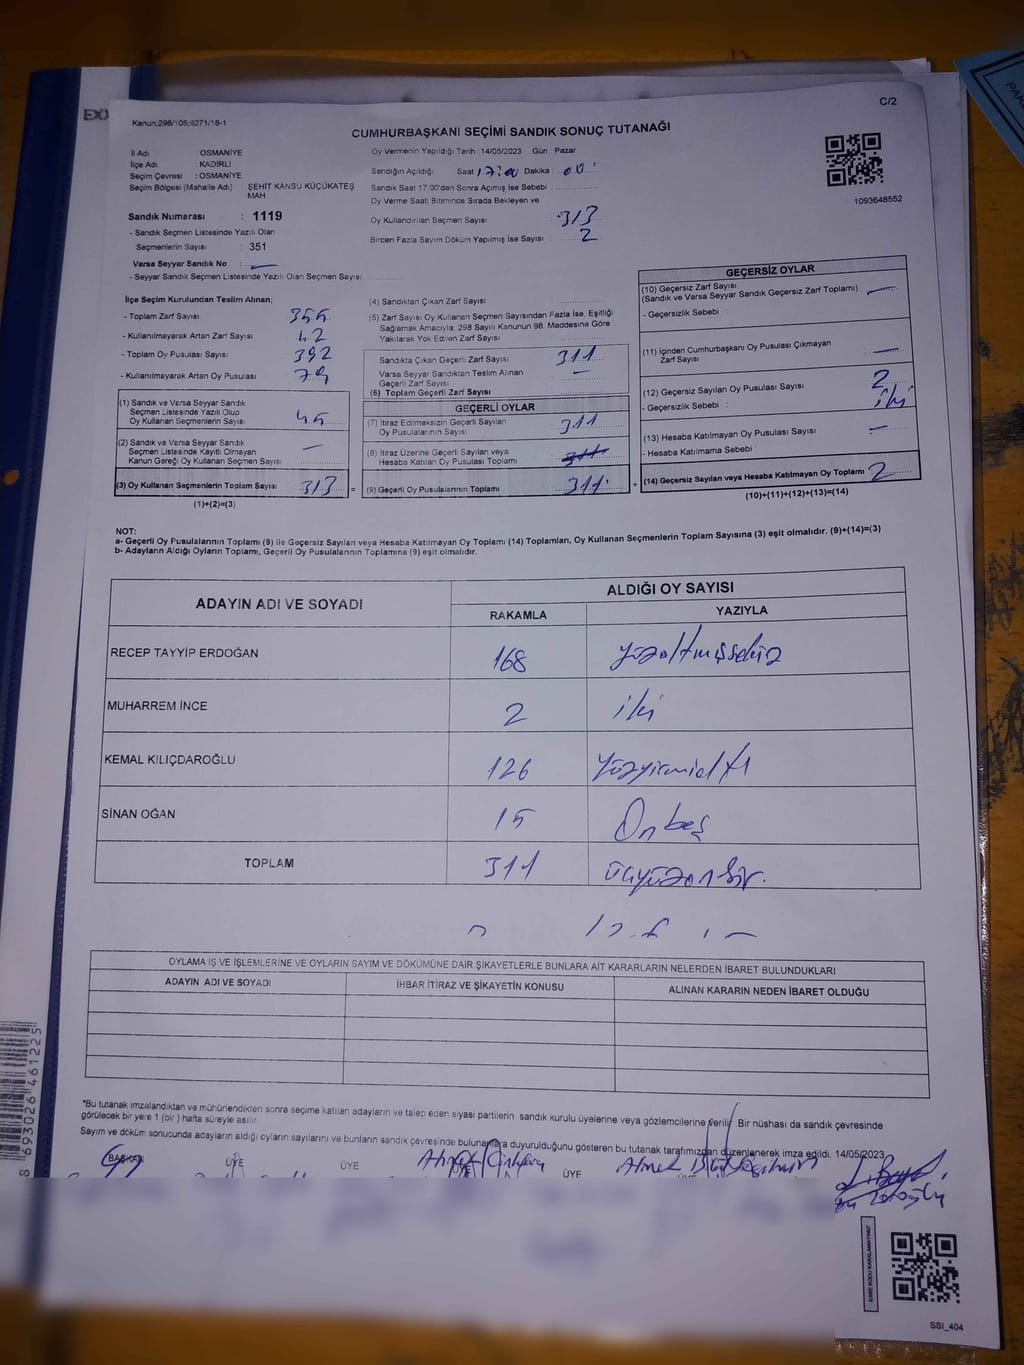 C/2
Kanun;298/105;6271/18-1
CUMHURBAŞKANI SEÇİMİ SANDIK SONUÇ TUTANAĞI
İl Adı : OSMANİYE
İlçe Adı : KADİRLİ
Seçim Çevresi : OSMANİYE
Seçim Bölgesi (Mahalle Adı) ŞEHİT KANSU KÜÇÜKATEŞ
MAH.
Sandık Numarası : 1119
- Sandık Seçmen Listesinde Yazılı Olan
Seçmenlerin Sayısı : 351
Varsa Seyyar Sandık No : —
- Seyyar Sandık Seçmen Listesinde Yazılı Olan Seçmen Sayısı
Oy Vermenin Yapıldığı Tarih :14/05/2023 Gün : Pazar
Sandığın Açıldığı Saat 17:00 Dakika : 00
Sandık Saat 17:00'den Sonra Açımış İse Sebebi :
Oy Verme Saati Bitiminde Sırada Bekleyen ve
Oy Kullandırılan Seçmen Sayısı 313
Birden Fazla Sayım Döküm Yapılmış İse Sayısı : 2
1093648552
İlçe Seçim Kurulundan Teslim Alınan;
- Toplam Zarf Sayısı 355
- Kullanılmayarak Artan Zarf Sayısı 42
- Toplam Oy Pusulası Sayısı 392
- Kullanılmayarak Artan Oy Pusulası 79
(1) Sandık ve Varsa Seyyar Sandık
Seçmen Listesinde Yazılı Olup
Oy Kullanan Seçmenlerin Sayısı 45
(2) Sandık ve Varsa Seyyar Sandık
Seçmen Listesinde Kayıtlı Olmayan
Kanun Gereği Oy Kullanan Seçmen Sayısı —
(3) Oy Kullanan Seçmenlerin Toplam Sayısı 313 =
(1)+(2)=(3)
(4) Sandıktan Çıkan Zarf Sayısı
(5) Zarf Sayısı Oy Kullanan Seçmen Sayısından Fazla İse, Eşitliği
Sağlamak Amacıyla; 298 Sayılı Kanunun 98. Maddesine Göre
Yakılarak Yok Edilen Zarf Sayısı
Sandıkta Çıkan Geçerli Zarf Sayısı 311
Varsa Seyyar Sandıktan Teslim Alınan
Geçerli Zarf Sayısı —
(6) Toplam Geçerli Zarf Sayısı
GEÇERLİ OYLAR
(7) İtiraz Edilmeksizin Geçerli Sayılan
Oy Pusulalarının Sayısı 311
(8) İtiraz Üzerine Geçerli Sayılan veya
Hesaba Katılan Oy Pusulası Toplamı 311
(9) Geçerli Oy Pusulalarının Toplamı 311 +
GEÇERSİZ OYLAR
(10) Geçersiz Zarf Sayısı
(Sandık ve Varsa Seyyar Sandık Geçersiz Zarf Toplamı) —
- Geçersizlik Sebebi :
(11) İçinden Cumhurbaşkanı Oy Pusulası Çıkmayan
Zarf Sayısı —
(12) Geçersiz Sayılan Oy Pusulası Sayısı 2
- Geçersizlik Sebebi : iki
(13) Hesaba Katılmayan Oy Pusulası Sayısı —
- Hesaba Katılmama Sebebi :
(14) Geçersiz Sayılan veya Hesaba Katılmayan Oy Toplamı 2
(10)+(11)+(12)+(13)=(14)
NOT:
a- Geçerli Oy Pusulalarının Toplamı (9) ile Geçersiz Sayılan veya Hesaba Katılmayan Oy Toplamı (14) Toplamları, Oy Kullanan Seçmenlerin Toplam Sayısına (3) eşit olmalıdır. (9)+(14)=(3)
b- Adayların Aldığı Oyların Toplamı, Geçerli Oy Pusulalarının Toplamına (9) eşit olmalıdır.
ADAYIN ADI VE SOYADI
ALDIĞI OY SAYISI
RAKAMLA YAZIYLA
RECEP TAYYİP ERDOĞAN 168 yüzaltmışsekiz
MUHARREM İNCE 2 iki
KEMAL KILIÇDAROĞLU 126 Yüzyirmialtı
SİNAN OĞAN 15 Onbeş
TOPLAM 311 üçyüzonbir.
OYLAMA İŞ VE İŞLEMLERİNE VE OYLARIN SAYIM VE DÖKÜMÜNE DAİR ŞİKAYETLERLE BUNLARA AİT KARARLARIN NELERDEN İBARET BULUNDUKLARI
ADAYIN ADI VE SOYADI İHBAR İTİRAZ VE ŞİKAYETİN KONUSU ALINAN KARARIN NEDEN İBARET OLDUĞU
"Bu tutanak imzalandıktan ve mühürlendikten sonra seçime katılan adayların ve talep eden siyasi partilerin sandık kurulu üyelerine veya gözlemcilerine verilir. Bir nüshası da sandık çevresinde
görülecek bir yere 1 (bir) hafta süreyle asılır.
Sayım ve döküm sonucunda adayların aldığı oyların sayılarını ve bunların sandık çevresinde bulunanlara duyurulduğunu gösteren bu tutanak tarafımızdan düzenlenerek imza edildi. 14/05/2023
BAŞKAN ÜYE ÜYE ÜYE ÜYE ÜYE
8 693026 461225
SSI_404